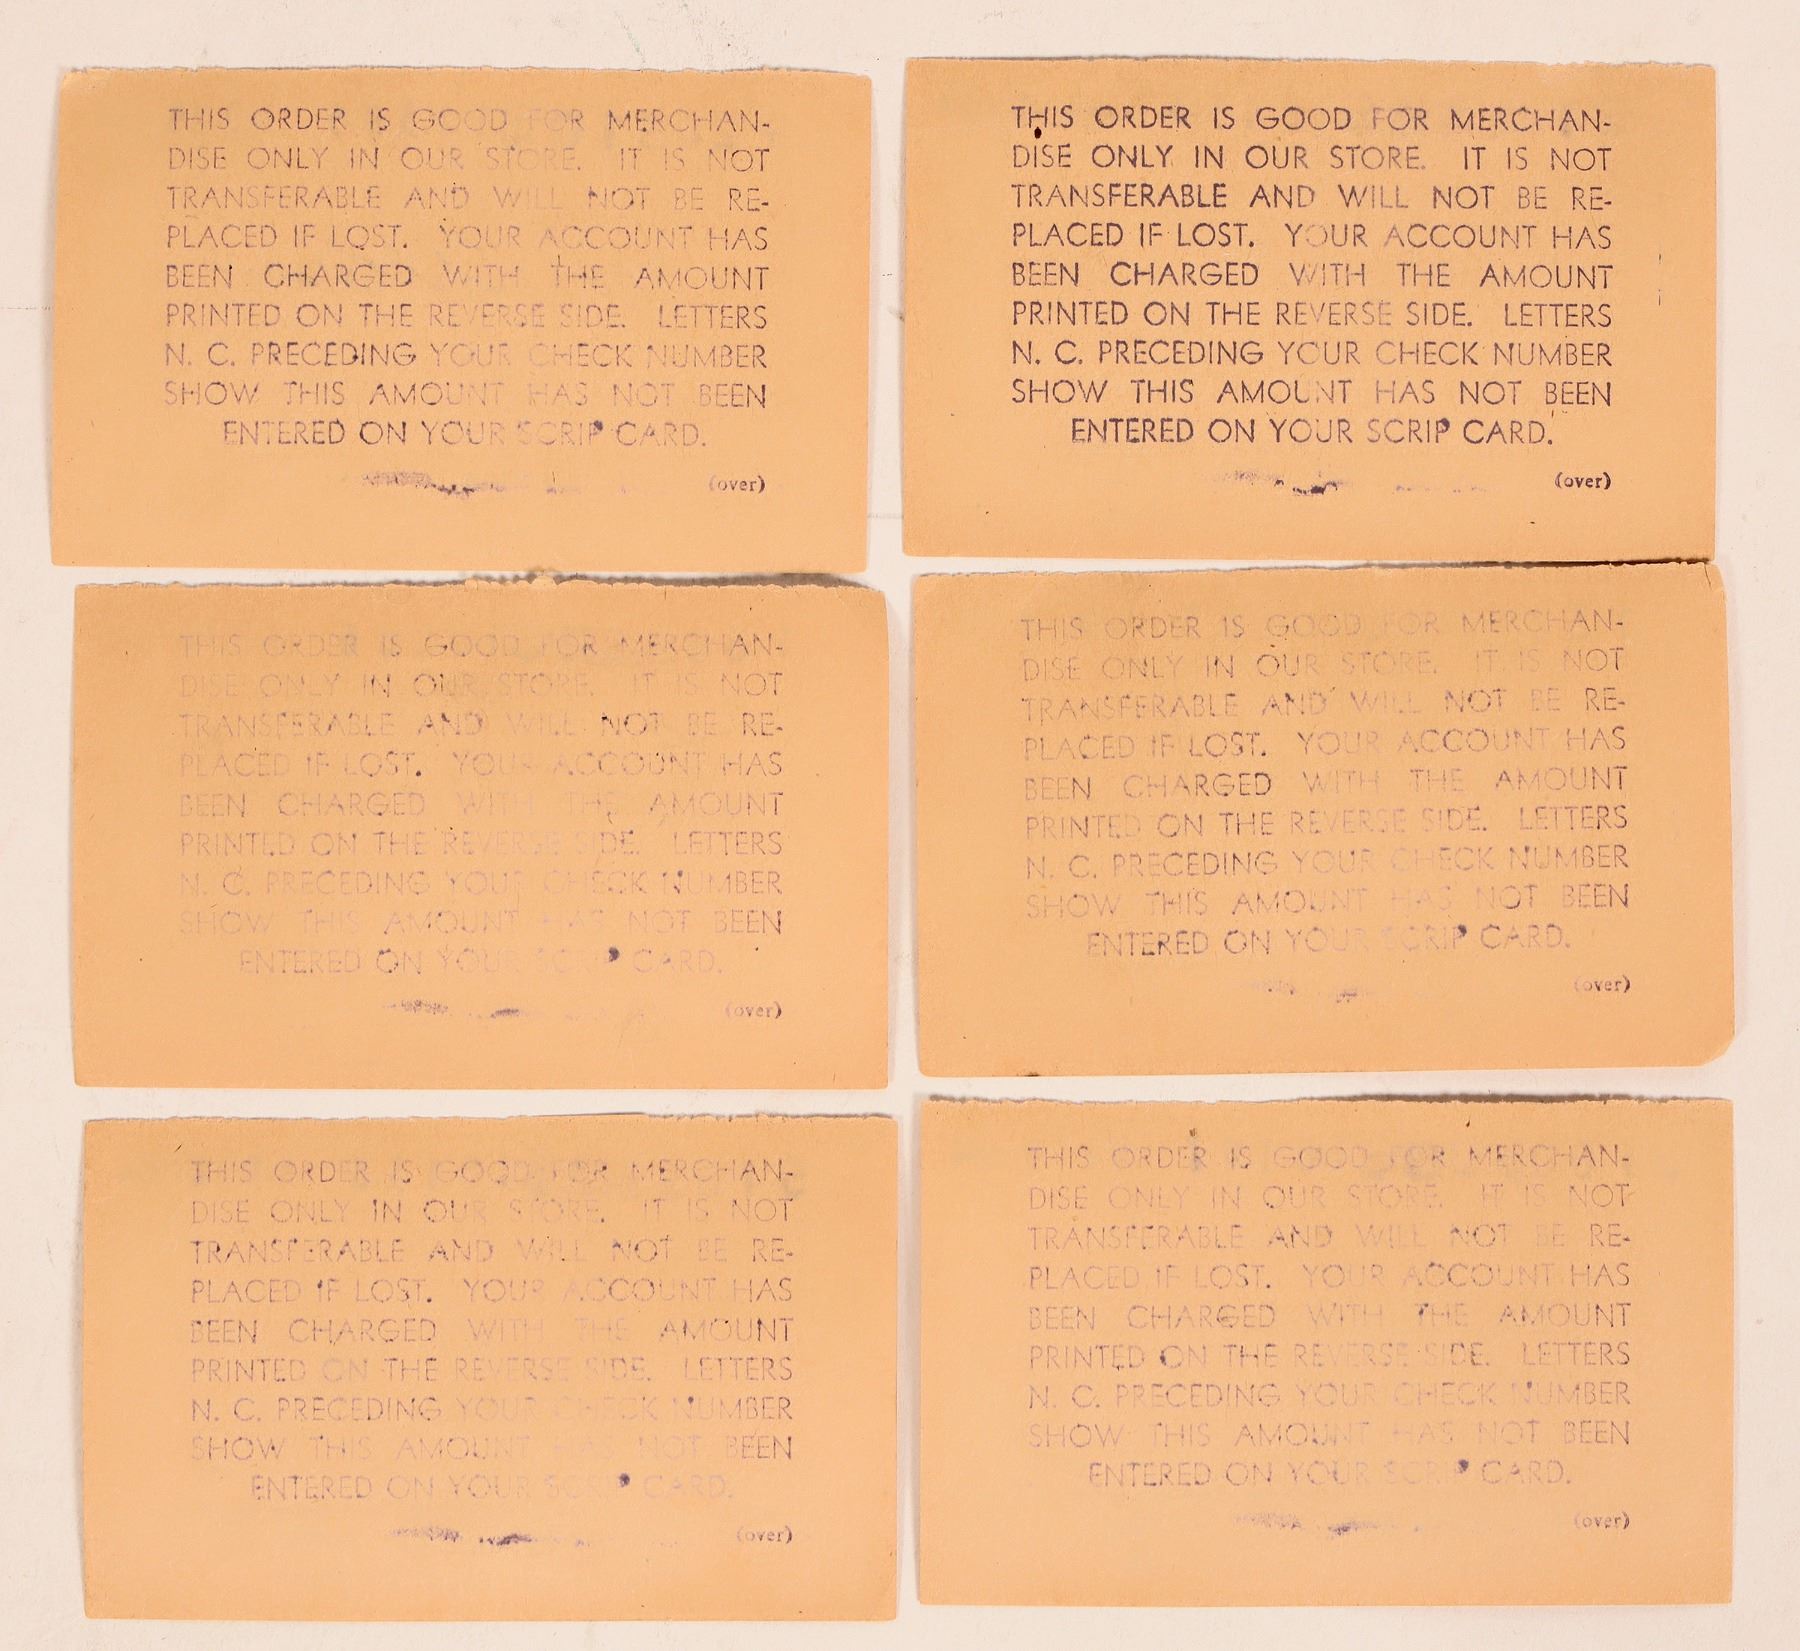 THIS ORDER IS GOOD FOR MERCHAN-
DISE ONLY IN OUR STORE. IT IS NOT
TRANSFERABLE AND WILL NOT BE RE-
PLACED IF LOST. YOUR ACCOUNT HAS
BEEN CHARGED WITH THE AMOUNT
PRINTED ON THE REVERSE SIDE. LETTERS
N. C. PRECEDING YOUR CHECK NUMBER
SHOW THIS AMOUNT HAS NOT BEEN
ENTERED ON YOUR SCRIP CARD.
(over)
THIS ORDER IS GOOD FOR MERCHAN-
DISE ONLY IN OUR STORE. IT IS NOT
TRANSFERABLE AND WILL NOT BE RE-
PLACED IF LOST. YOUR ACCOUNT HAS
BEEN CHARGED WITH THE AMOUNT
PRINTED ON THE REVERSE SIDE. LETTERS
N. C. PRECEDING YOUR CHECK NUMBER
SHOW THIS AMOUNT HAS NOT BEEN
ENTERED ON YOUR SCRIP CARD.
(over)
THIS ORDER IS GOOD FOR MERCHAN-
DISE ONLY IN OUR STORE. IT IS NOT
TRANSFERABLE AND WILL NOT BE RE-
PLACED IF LOST. YOUR ACCOUNT HAS
BEEN CHARGED WITH THE AMOUNT
PRINTED ON THE REVERSE SIDE. LETTERS
N. C. PRECEDING YOUR CHECK NUMBER
SHOW THIS AMOUNT HAS NOT BEEN
ENTERED ON YOUR SCRIP CARD.
(over)
THIS ORDER IS GOOD FOR MERCHAN-
DISE ONLY IN OUR STORE. IT IS NOT
TRANSFERABLE AND WILL NOT BE RE-
PLACED IF LOST. YOUR ACCOUNT HAS
BEEN CHARGED WITH THE AMOUNT
PRINTED ON THE REVERSE SIDE. LETTERS
N. C. PRECEDING YOUR CHECK NUMBER
SHOW THIS AMOUNT HAS NOT BEEN
ENTERED ON YOUR SCRIP CARD.
(over)
THIS ORDER IS GOOD FOR MERCHAN-
DISE ONLY IN OUR STORE. IT IS NOT
TRANSFERABLE AND WILL NOT BE RE-
PLACED IF LOST. YOUR ACCOUNT HAS
BEEN CHARGED WITH THE AMOUNT
PRINTED ON THE REVERSE SIDE. LETTERS
N. C. PRECEDING YOUR CHECK NUMBER
SHOW THIS AMOUNT HAS NOT BEEN
ENTERED ON YOUR SCRIP CARD.
(over)
THIS ORDER IS GOOD FOR MERCHAN-
DISE ONLY IN OUR STORE. IT IS NOT
TRANSFERABLE AND WILL NOT BE RE-
PLACED IF LOST. YOUR ACCOUNT HAS
BEEN CHARGED WITH THE AMOUNT
PRINTED ON THE REVERSE SIDE. LETTERS
N. C. PRECEDING YOUR CHECK NUMBER
SHOW THIS AMOUNT HAS NOT BEEN
ENTERED ON YOUR SCRIP CARD.
(over)